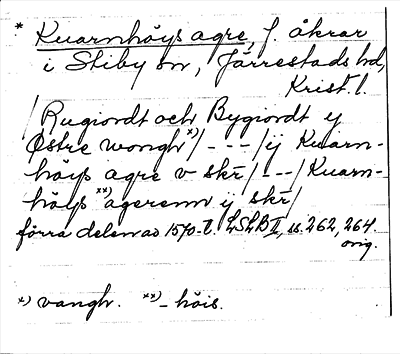 * Kuarnhöys agre, f. åkrar
i Stiby sn, Järrestads hd,
Krist. l.
/Rugiordt och Bygiordt ij
Østre wongh *)/ - - - /ij Kuarn-
höys agre v skr/ - - - /Kuarn-
höys **) agerenn ij skr/
förra delen av 1570-t. LSLB II, ss. 262, 264.
orig.
*) vangh. **) - höis.